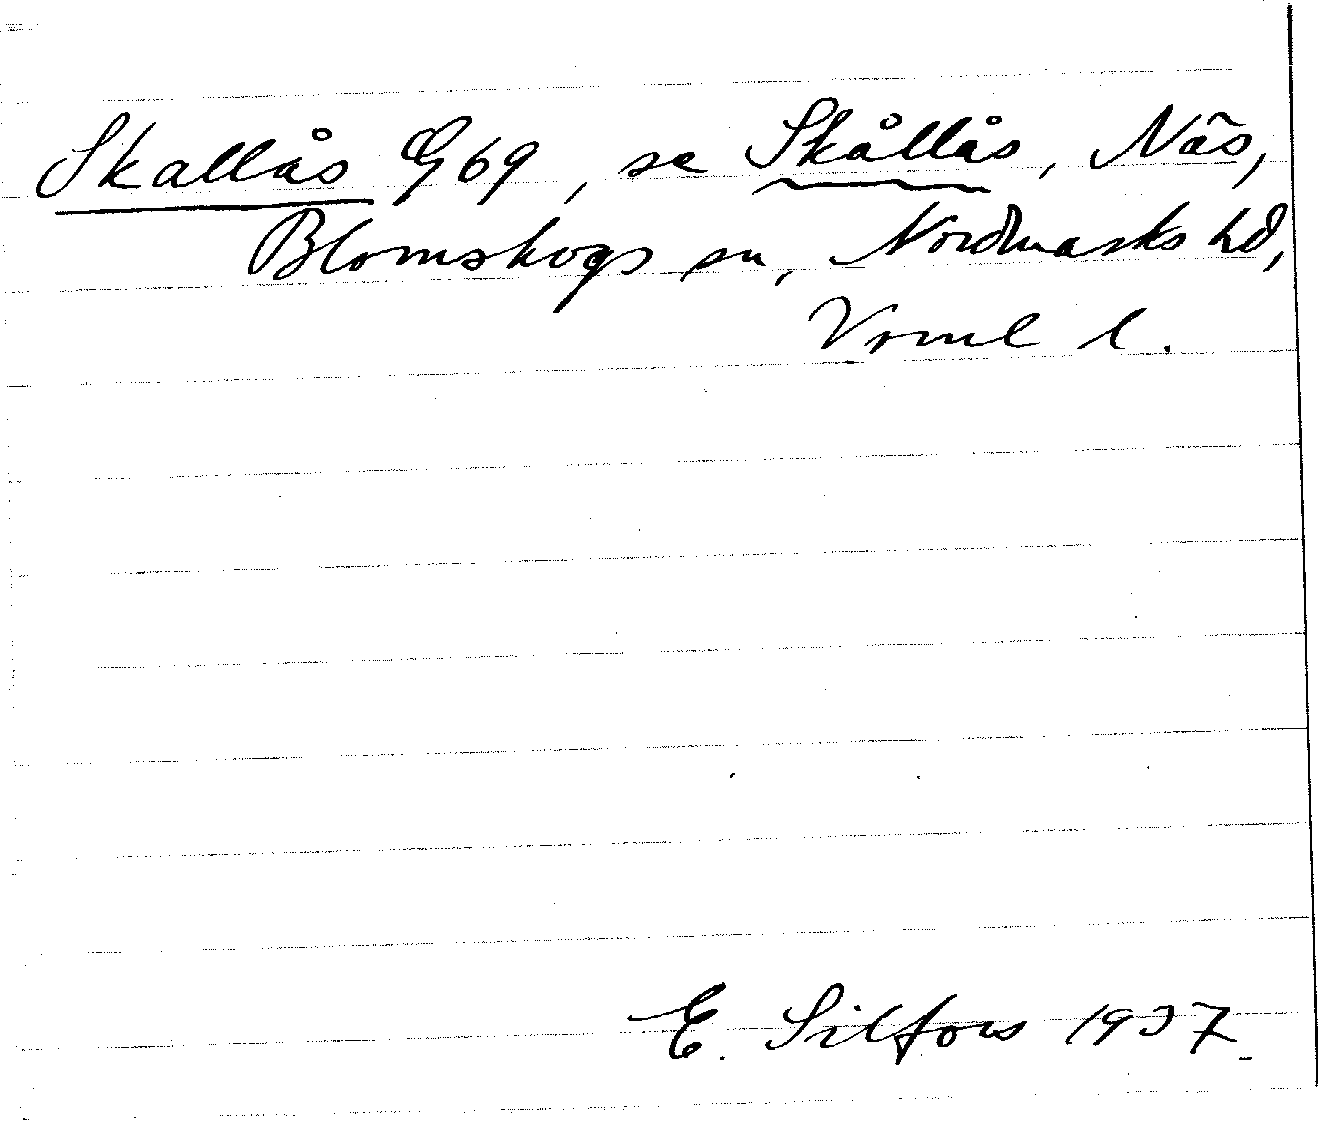 Skallås G69, se Skållås, Näs,
Blomskogs sn, Nordmarks hd,
Vrml l.
E. Silfors 1937.